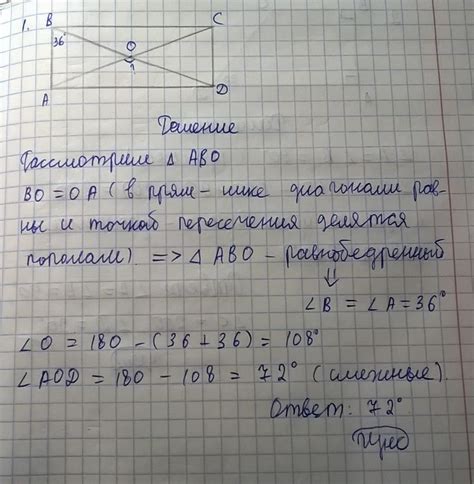 1. B C
36°
O
?
A D
Решение
Рассмотрим △ ABO
BO = OA (в прям-нике диагонали рав-
ны и точкой пересечения делятся
пополам) => △ ABO - равнобедренный
⇓
∠B = ∠A = 36°
∠O = 180 - (36 + 36) = 108°
∠AOD = 180 - 108 = 72° (смежные).
Ответ: 72°